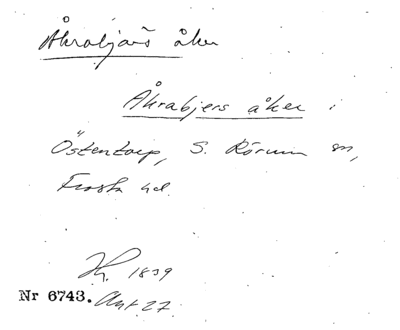 Åkrabjärs åker
Åkrabjers åker i
Östentorp, S. Rörum sn,
Frosta hd.
1839
Nr 6743. Akt 27.